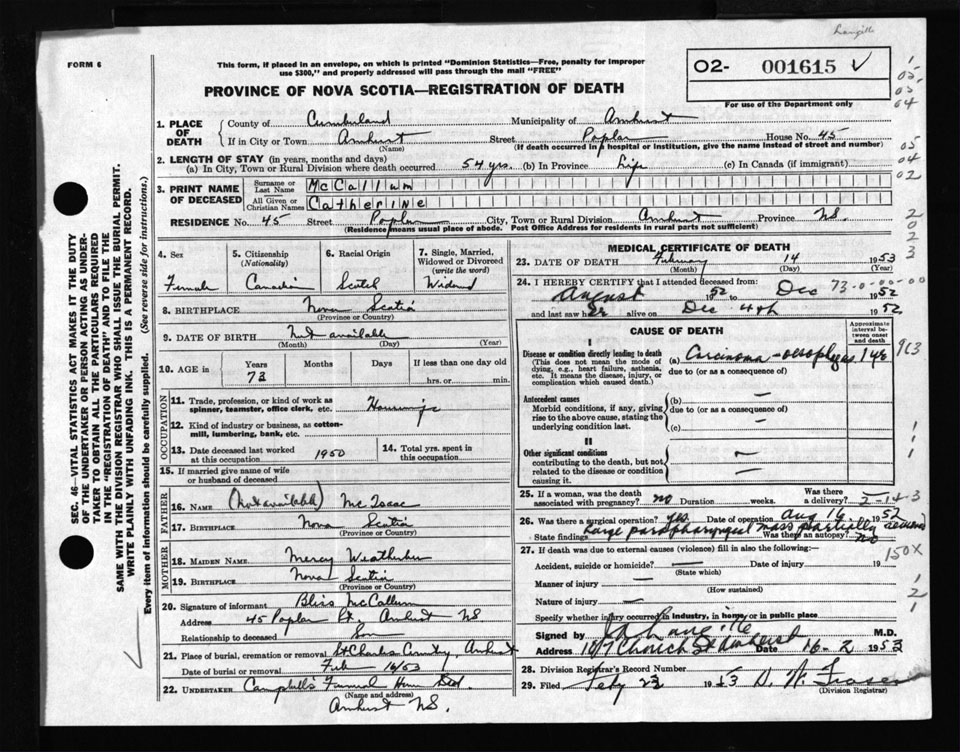 Langille
FORM 6
This form, if placed in an envelope, on which is printed "Dominion Statistics—Free, penalty for improper
use $300," and properly addressed will pass through the mail "FREE"
O2- 001615 ✓
For use of the Department only
PROVINCE OF NOVA SCOTIA—REGISTRATION OF DEATH
1. PLACE OF DEATH County of Cumberland Municipality of Amherst
If in City or Town Amherst (Name) Street Poplar House No. 45
(If death occurred in a hospital or institution, give the name instead of street and number)
2. LENGTH OF STAY (in years, months and days)
(a) In City, Town or Rural Division where death occurred 54 yrs. (b) In Province Life (c) In Canada (if immigrant)
3. PRINT NAME OF DECEASED Surname or Last Name McCallum
All Given or Christian Names Catherine
RESIDENCE No. 45 Street Poplar City, Town or Rural Division Amherst Province NS.
(Residence means usual place of abode. Post Office Address for residents in rural parts not sufficient)
4. Sex Female
5. Citizenship (Nationality) Canadian
6. Racial Origin Scotch
7. Single, Married, Widowed or Divorced (write the word) Widowed
8. BIRTHPLACE Nova Scotia
(Province or Country)
9. DATE OF BIRTH Not available
(Month) (Day) (Year)
10. AGE in Years 73 Months Days If less than one day old
hrs. or min.
OCCUPATION
11. Trade, profession, or kind of work as spinner, teamster, office clerk, etc. Housewife
12. Kind of industry or business, as cotton-mill, lumbering, bank, etc.
13. Date deceased last worked at this occupation 1950
14. Total yrs. spent in this occupation
15. If married give name of wife or husband of deceased
FATHER
16. NAME (Not available) McIsaac
17. BIRTHPLACE Nova Scotia
(Province or Country)
MOTHER
18. MAIDEN NAME Mercy
19. BIRTHPLACE Nova Scotia
(Province or Country)
20. Signature of informant Bliss McCallum
Address 45 Poplar St. Amherst NS
Relationship to deceased Son
21. Place of burial, cremation or removal St Charles Cemetery, Amherst
Date of burial or removal Feb 16/53
22. UNDERTAKER Campbell's Funeral Home Ltd.
(Name and address)
Amherst NS.
SEC. 46—VITAL STATISTICS ACT MAKES IT THE DUTY
OF THE UNDERTAKER OR PERSON ACTING AS UNDER-
TAKER TO OBTAIN ALL THE PARTICULARS REQUIRED
IN THE "REGISTRATION OF DEATH" AND TO FILE THE
SAME WITH THE DIVISION REGISTRAR WHO SHALL ISSUE THE BURIAL PERMIT.
WRITE PLAINLY WITH UNFADING INK. THIS IS A PERMANENT RECORD.
Every item of information should be carefully supplied. (See reverse side for instructions.)
MEDICAL CERTIFICATE OF DEATH
23. DATE OF DEATH February 14 1953
(Month) (Day) (Year)
24. I HEREBY CERTIFY that I attended deceased from:
August 1952 to Dec 1952
73-0-00-00
and last saw her alive on Dec 4th 1952
CAUSE OF DEATH
Approximate interval between onset and death
I
Disease or condition directly leading to death
(This does not mean the mode of dying, e.g., heart failure, asthenia, etc. It means the disease, injury, or complication which caused death.)
(a) Carcinoma - oesophagus
due to (or as a consequence of)
Antecedent causes
Morbid conditions, if any, giving rise to the above cause, stating the underlying condition last.
(b) —
due to (or as a consequence of)
(c) —
II
Other significant conditions
contributing to the death, but not related to the disease or condition causing it.
25. If a woman, was the death associated with pregnancy? no Duration weeks. Was there a delivery?
2-14-3
26. Was there a surgical operation? yes Date of operation Aug 16 1952
State findings Large parapharyngeal mass partially removed Was there an autopsy? no
27. If death was due to external causes (violence) fill in also the following:—
Accident, suicide or homicide? — Date of injury 19
(State which)
Manner of injury —
(How sustained)
Nature of injury —
Specify whether injury occurred in industry, in home or in public place
150X
Signed by Langille M.D.
Address 107 Church St Amherst Date 16-2 1953
28. Division Registrar's Record Number
29. Filed Feby 23 1953 D. W. Fraser
(Division Registrar)